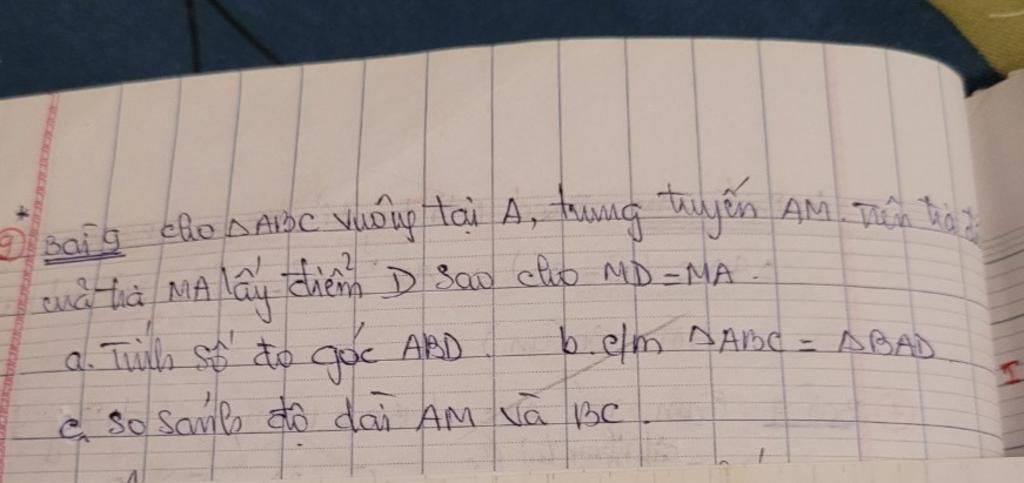 * Bài 9 cho △ABC vuông tại A, trung tuyến AM. Trên tia đ
của tia MA lấy điểm D sao cho MD=MA.
a. Tính số đo góc ABD. b. c/m △ABC = △BAD
c. so sánh độ dài AM và BC.